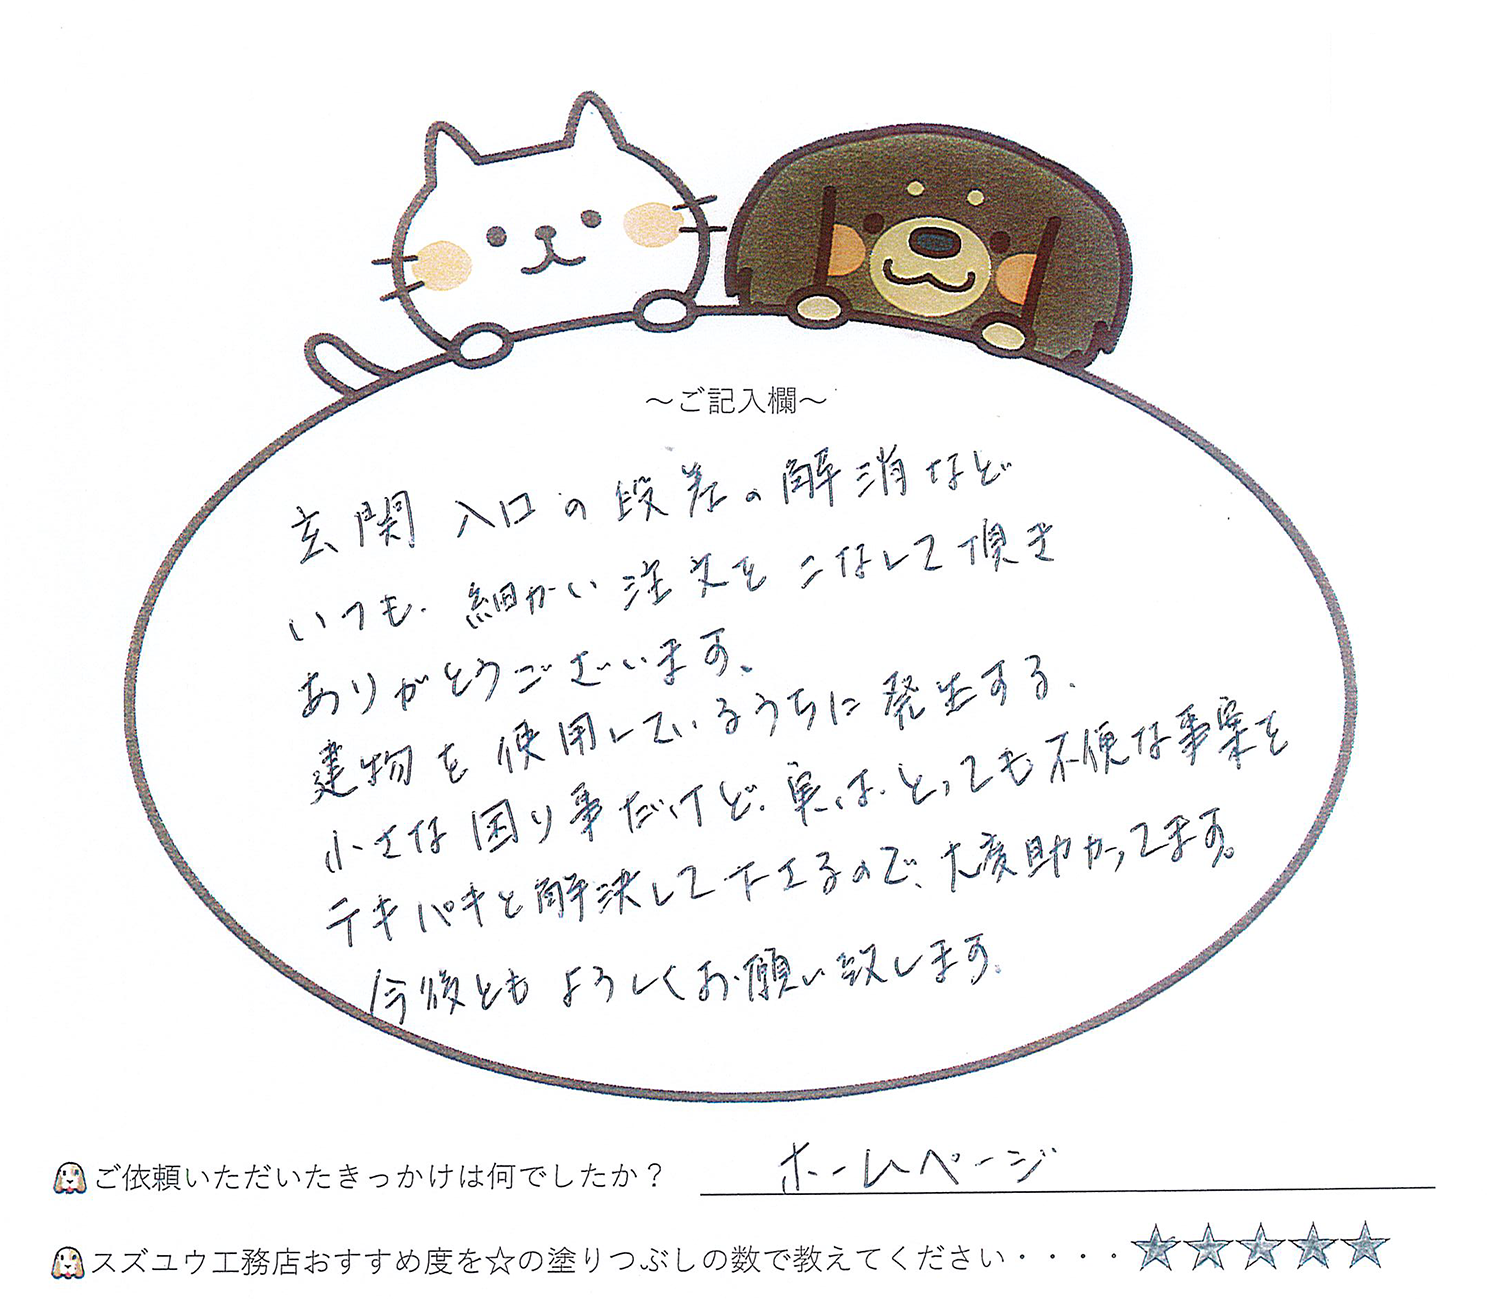 ～ご記入欄～
玄関入口の段差の解消など
いつも、細かい注文をこなして頂き
ありがとうございます。
建物を使用しているうちに発生する、
小さな困り事だけど、実は、とっても不便な事案を
テキパキと解決して下さるので、大変助かってます。
今後ともよろしくお願い致します。
ご依頼いただいたきっかけは何でしたか？ ホームページ
スズユウ工務店おすすめ度を☆の塗りつぶしの数で教えてください・・・・★★★★★